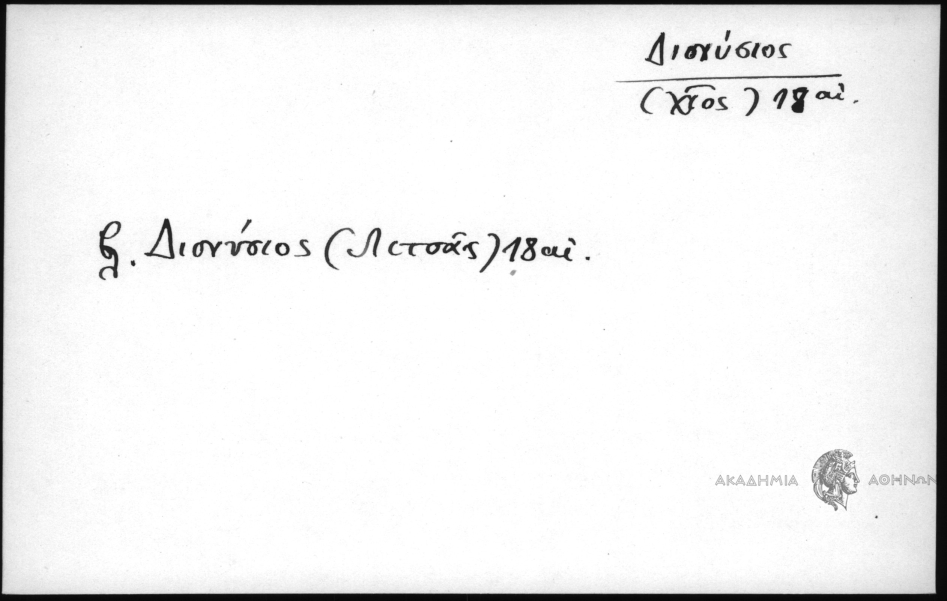 Διονύσιος
(Χῖος) 18 αἰ.
βλ. Διονύσιος (Λετσᾶς) 18 αἰ.
ΑΚΑΔΗΜΙΑ ΑΘΗΝΩΝ